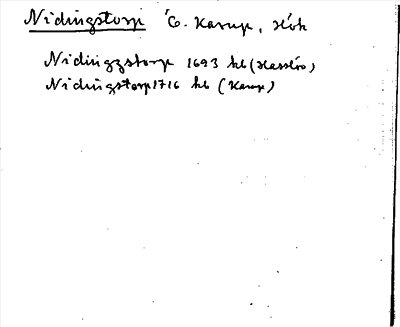 Nidingstorp Ö. Karup, Höks
Nidingzstorp 1693 kb (Hasslöv)
Nidingstorp 1716 kb (Karup)